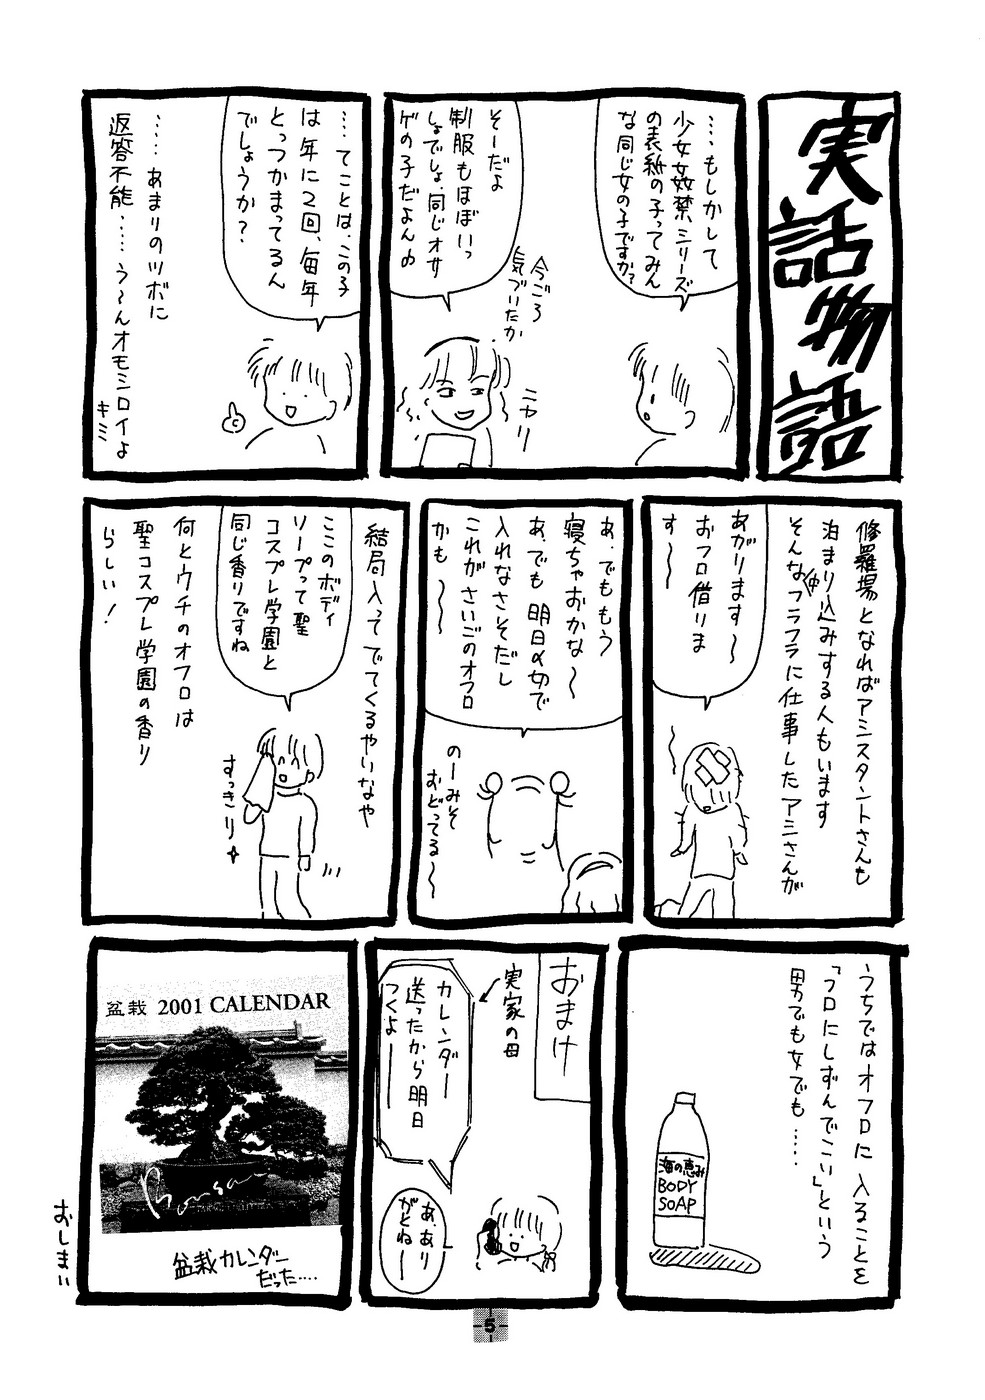 実話物語
……もしかして
少女姦禁シリーズ
の表紙の子ってみん
な同じ女の子ですか?
今ごろ
気づいたか
そーだよ
制服もほぼいっ
しょでしょ、同じオサ
ゲの子だよん♪
ニヤリ
……てことは、この子
は年に2回、毎年
とっつかまってるん
でしょうか?
……あまりのツボに
返答不能……う〜んオモシロイよ
キミ
修羅場となればアシスタントさんも
泊まり込みする人もいます
そんな中フラフラに仕事したアシさんが
あがります〜
おフロ借りま
す〜
あ、でももう
寝ちゃおかな〜
あ、でも明日〆切で
入れなさそだし
これがさいごのオフロ
かも〜〜
のーみそ
おどってる〜
結局入ってでてくるやいなや
ここのボディ
ソープって聖
コスプレ学園と
同じ香りですね
すっきりー
何とウチのオフロは
聖コスプレ学園の香り
らしい!
うちではオフロに入ることを
「フロにしずんでこい」という
男でも女でも……
海の恵み
BODY
SOAP
おまけ
実家の母
カレンダー
送ったから明日
つくよ——
あ、あり
がとねー
盆栽 2001 CALENDAR
Bonsai
盆栽カレンダー
だった……
おしまい
5